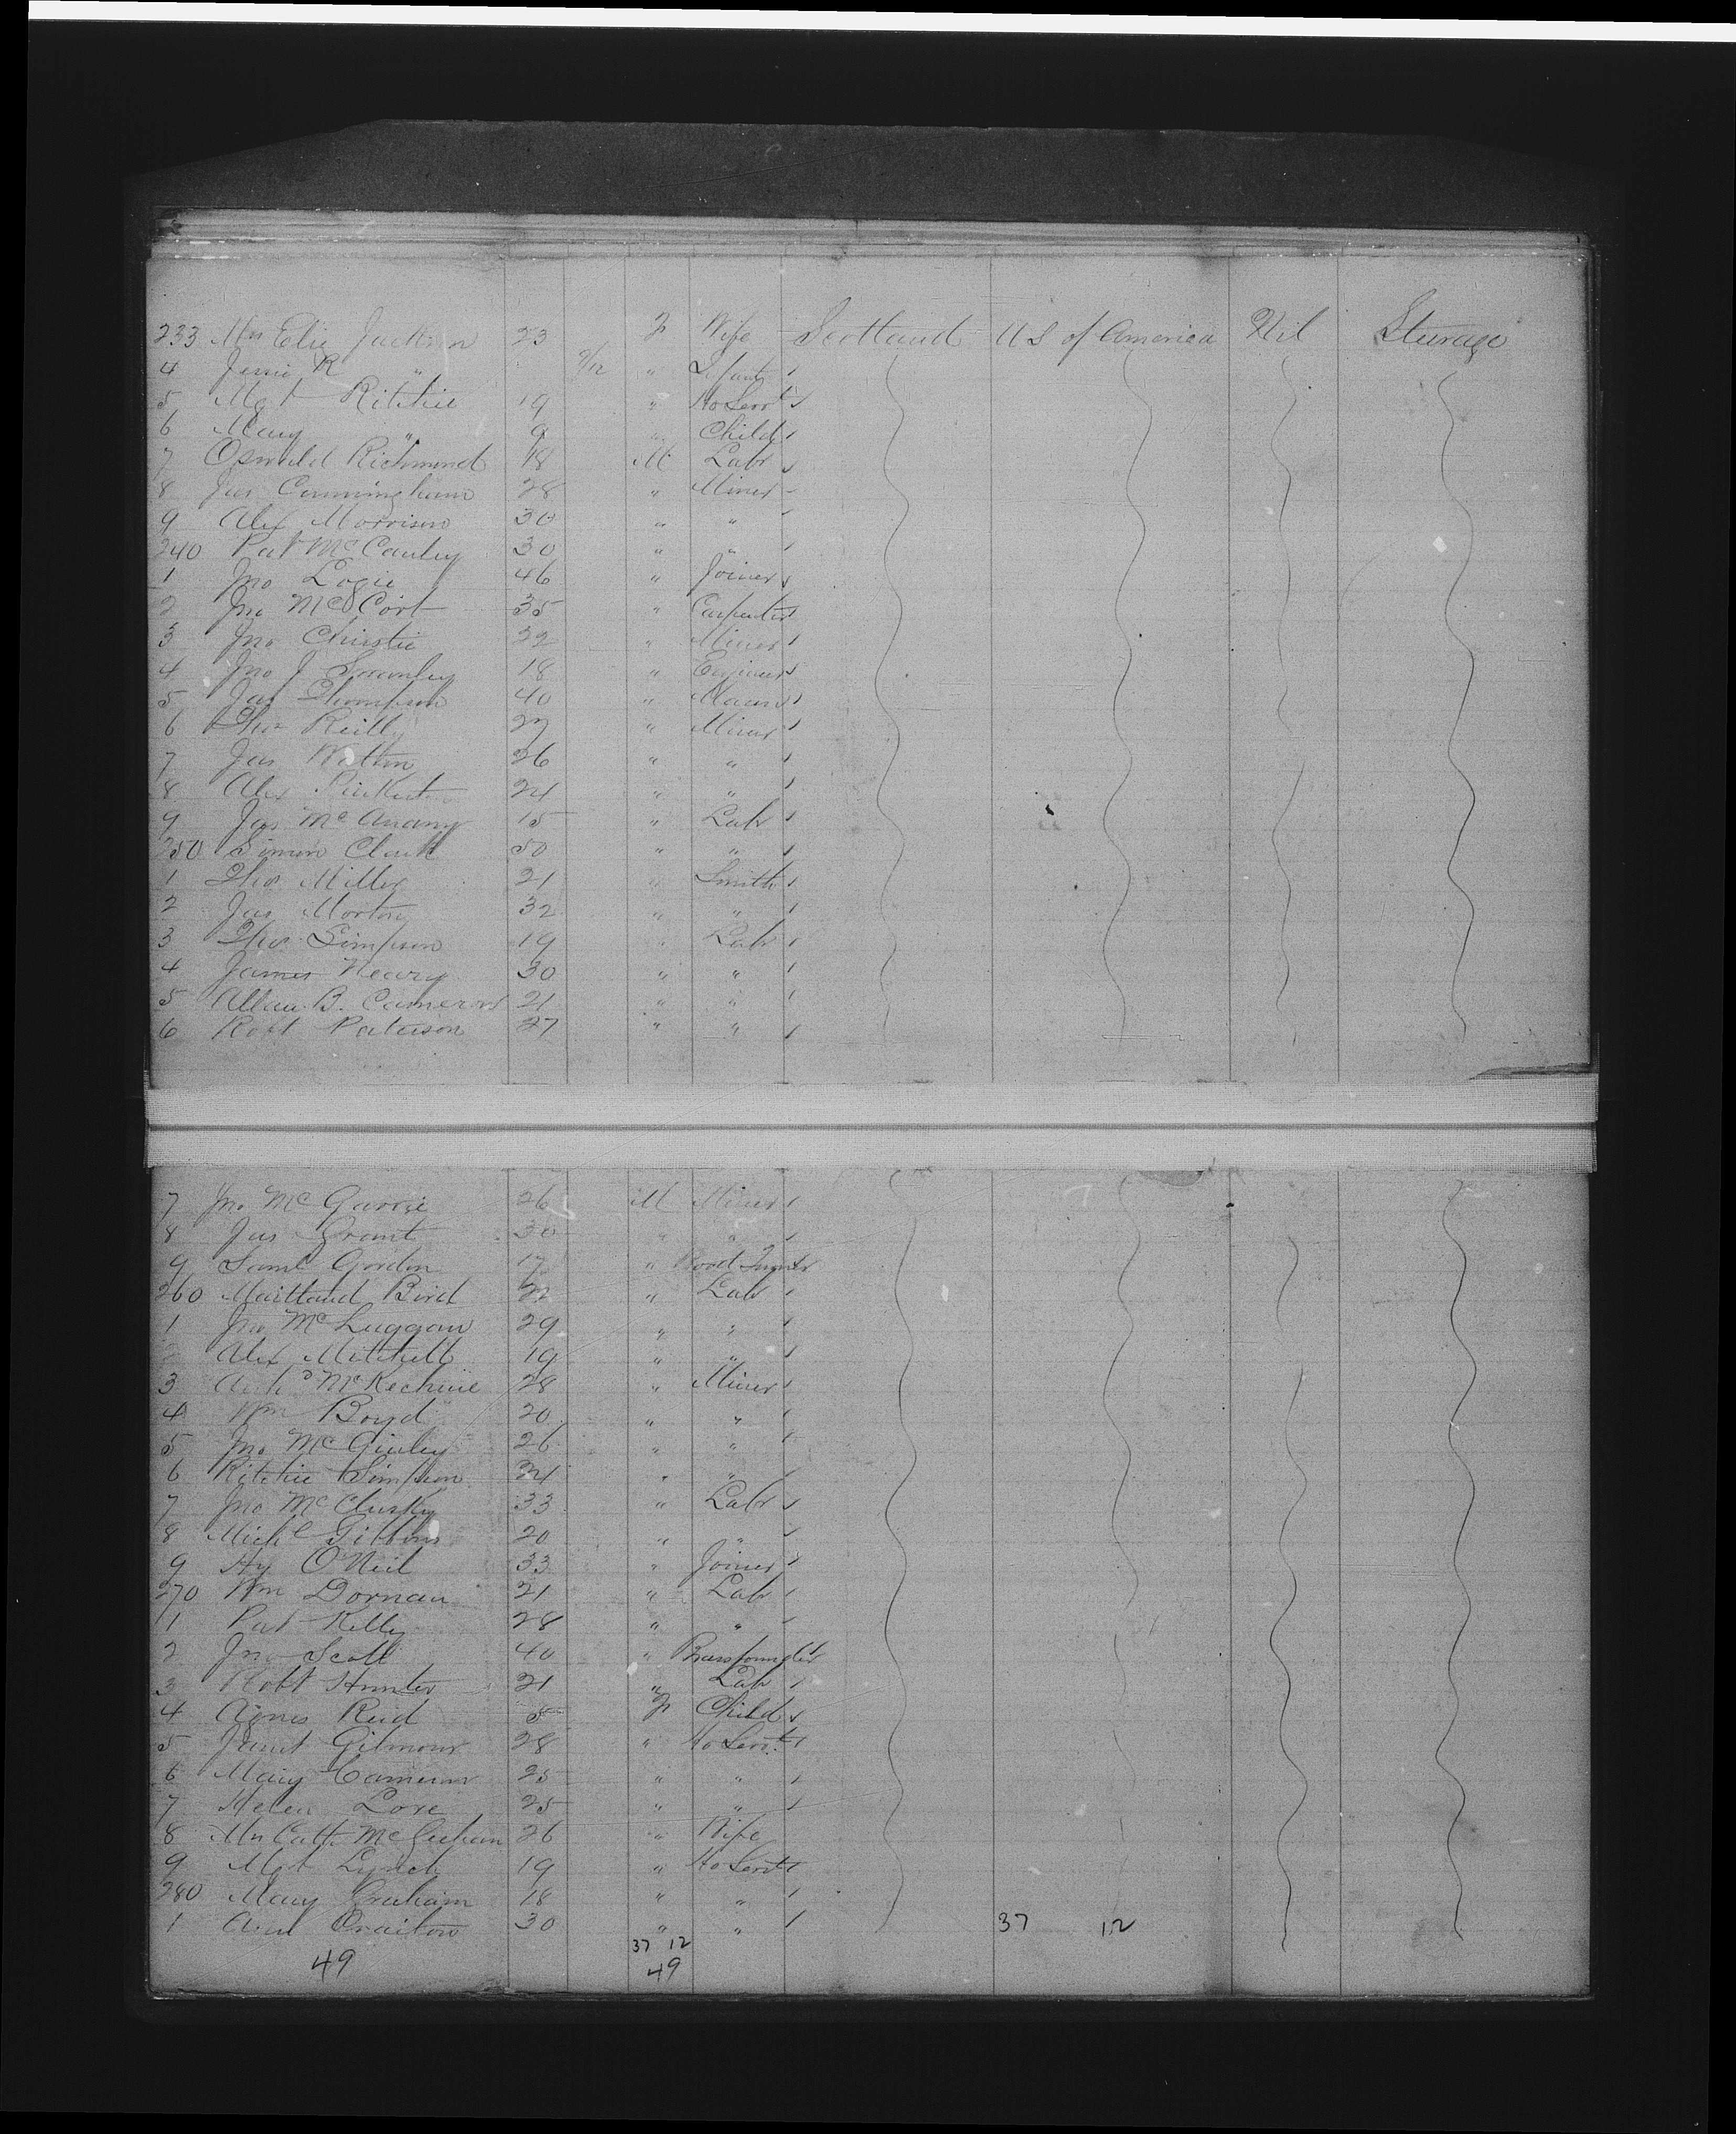 233 Mrs Eliz Jackson 23 F Wife Scotland U S of America Nil Steerage
4 Jessie R " 9/12 " Infant
5 Mgt Ritchie 19 " Ho Servt
6 Mary " 9 " Child
7 Oswald Richmond 18 M Labr
8 Jas Cunningham 28 " Miner
9 Alex Morrison 30 " "
240 Pat McCauley 30 " "
1 Jno Logie 46 " Joiner
2 Jno McCort 35 " Carpenter
3 Jno Christie 22 " Miner
4 Jno J 18 " Engineer
5 Jas Thompson 40 " Mason
6 Thos Reilly 27 " Miner
7 Jas Watson 26 " "
8 Alex Pinkerton 24 " "
9 Jas McAnany 15 " Labr
250 Simon Clark 50 " "
1 Thos Miller 21 " Smith
2 Jas Morton 32 " "
3 Thos Simpson 19 " Labr
4 James Neary 30 " "
5 Allan B. Cameron 21 " "
6 Robt Paterson 27 " "
7 Jno McGarrie 26 M Miner
8 Jas Grant 30 " "
9 Saml Gordon 17 " Wood Turner
260 Maitland Bird 22 " Labr
1 Jno McLuggan 29 " "
2 Alex Mitchell 19 " "
3 Archd McKechnie 28 " Miner
4 Wm Boyd 20 " "
5 Jno McGinley 26 " "
6 Ritchie Simpson 24 " "
7 Jno McClusky 33 " Labr
8 Michl Gibbons 20 " "
9 Hy O'Neil 33 " Joiner
270 Wm Dornan 21 " Labr
1 Pat Kelly 28 " "
2 Jno Scott 40 " Brassfounder
3 Robt Hunter 21 " Labr
4 Agnes Reid 5 F Child
5 Janet Gilmour 28 " Ho Servt
6 Mary Cameron 25 " "
7 Helen Love 25 " "
8 Mrs Cath McGeehan 26 " Wife
9 Mgt Lynch 19 " Ho Servt
280 Mary Graham 18 " "
1 30 " " 37 12
37 12
49 49